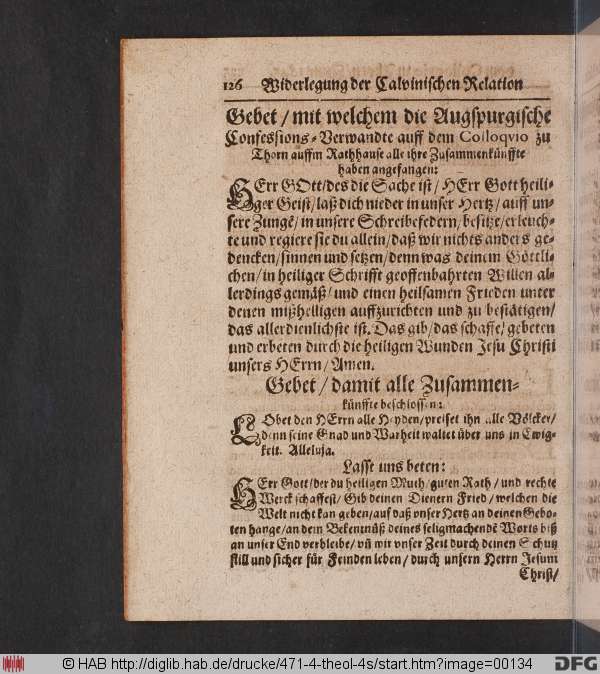 126 Widerlegung der Calvinischen Relation
Gebet / mit welchem die Augspurgische
Confessions-Verwandte auff dem Colloqvio zu
Thorn auffm Rathhause alle ihre Zusammenkünffte
haben angefangen:
HErr GOtt / des die Sache ist / HErr Gott heili-
ger Geist / laß dich nieder in unser Hertz / auff un-
sere Zungē / in unsere Schreibefedern / besitze / erleuch-
te und regiere sie du allein / daß wir nichts anders ge-
dencken / sinnen und setzen / denn was deinem Göttli-
chen / in heiliger Schrifft geoffenbahrten Willen al-
lerdings gemäß / und einen heilsamen Frieden unter
denen mißhelligen auffzurichten und zu bestätigen /
das allerdienlichste ist. Das gib / das schaffe / gebeten
und erbeten durch die heiligen Wunden Jesu Christi
unsers HErrn / Amen.
Gebet / damit alle Zusammen-
künffte beschlossen:
LObet den HErrn alle Heyden / preiset ihn alle Völcker /
denn seine Gnad und Warheit waltet über uns in Ewig-
keit. Alleluja.
Lasst uns beten:
HErr Gott / der du heiligen Muth / guten Rath / und rechte
Werck schaffest / Gib deinen Dienern Fried / welchen die
Welt nicht kan geben / auf daß vnser Hertz an deinen Gebo-
ten hange / an dem Bekentnüß deines seligmachende Worts biß
an unser End verbleibe / vñ wir vnser Zeit durch deinen Schutz
still und sicher für Feinden leben / durch unsern Herrn Jesum
Christ /
© HAB http://diglib.hab.de/drucke/471-4-theol-4s/start.htm?image=00134
DFG